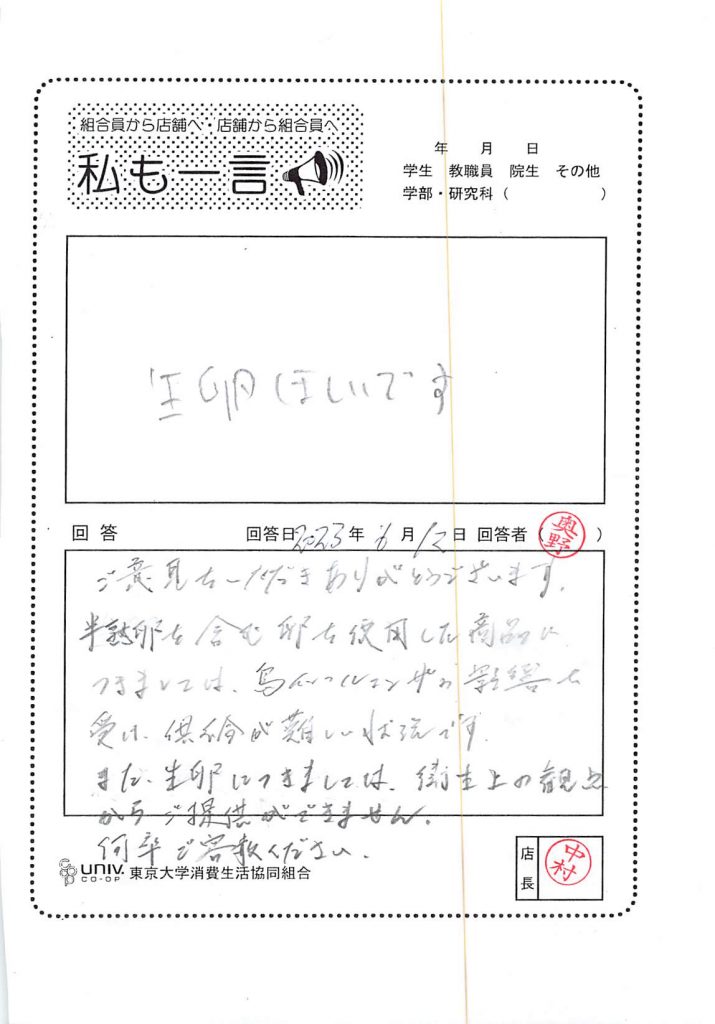 組合員から店舗へ・店舗から組合員へ
私も一言
年 月 日
学生 教職員 院生 その他
学部・研究科( )
生卵ほしいです
回答 回答日2023年6月12日 回答者(奥野)
ご意見をいただきありがとうございます。
半熟卵を含む卵を使用した商品に
つきましては、鳥インフルエンザの影響を
受け、供給が難しい状況です。
また、生卵につきましては、衛生上の観点
からご提供ができません。
何卒ご容赦ください。
UNIV. CO-OP 東京大学消費生活協同組合
店長 中村